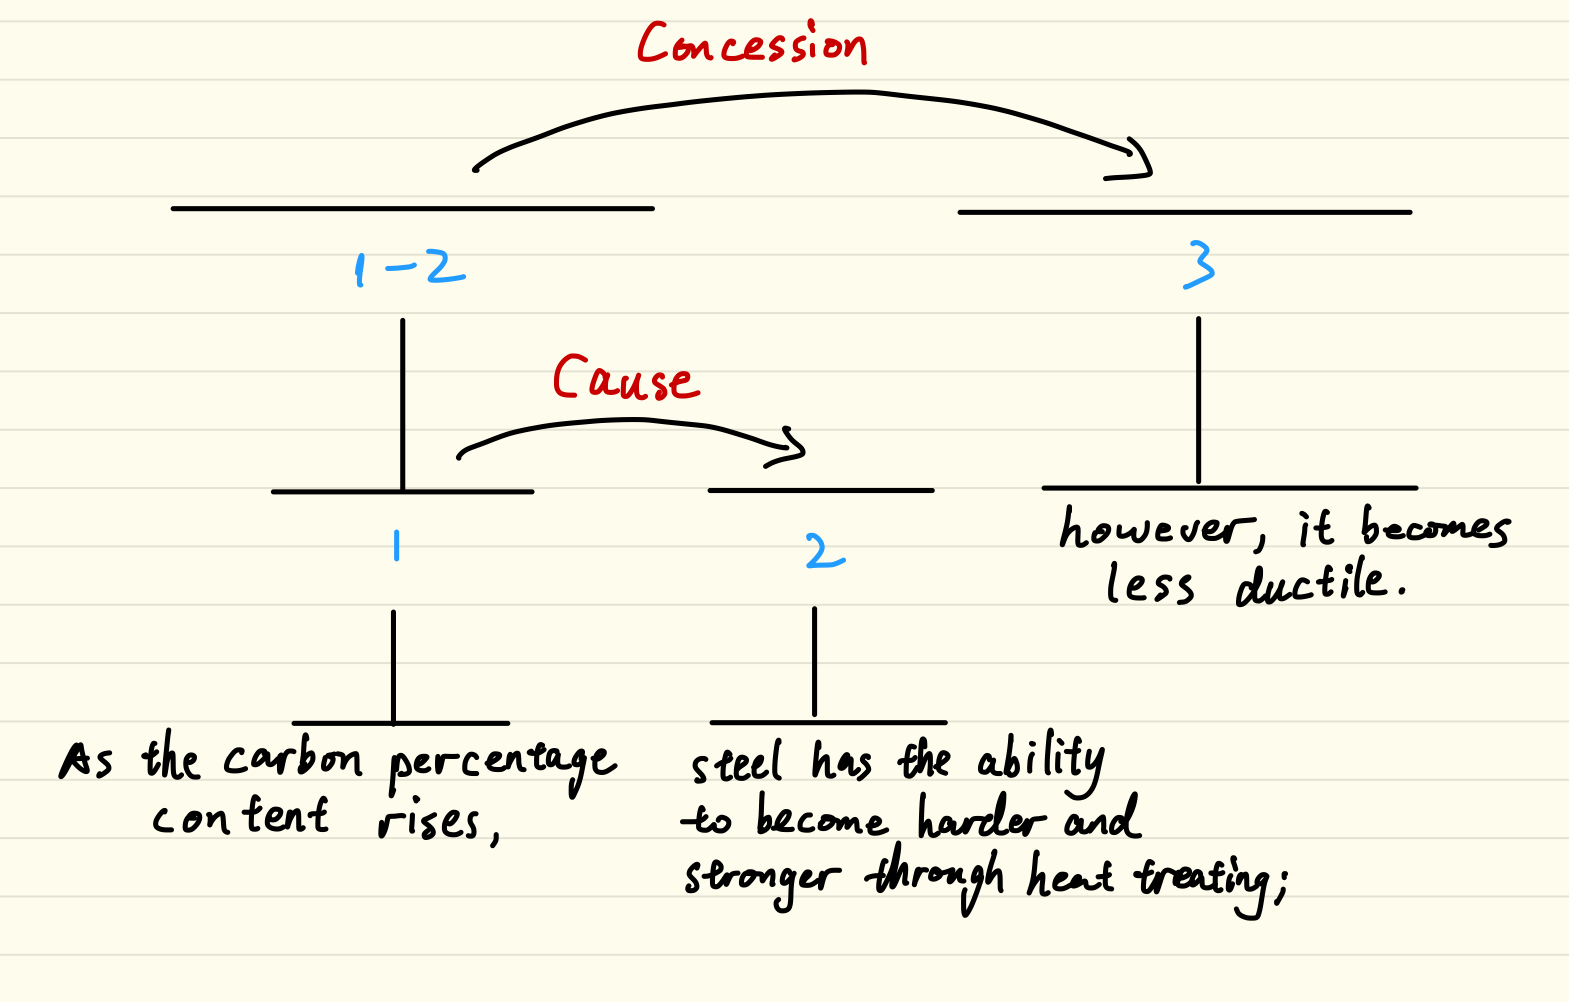 Concession
1-2
3
Cause
1
2
however, it becomes
less ductile.
As the carbon percentage
content rises,
steel has the ability
to become harder and
stronger through heat treating;